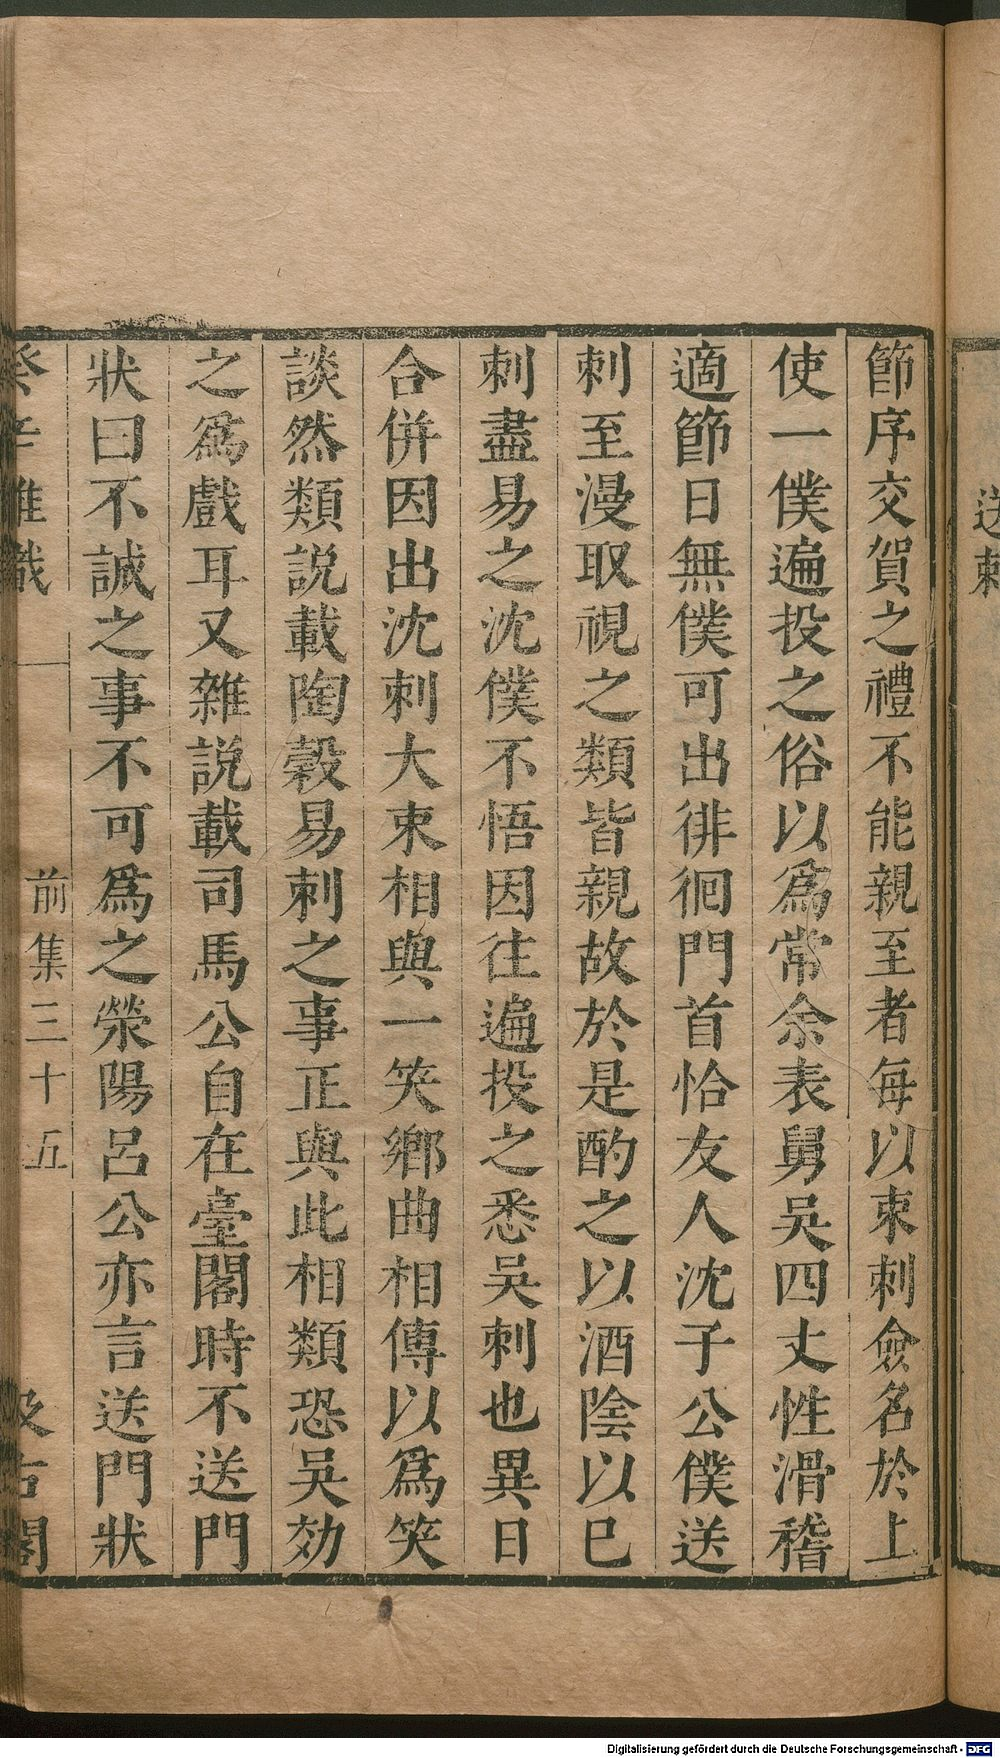 送刺
節序交賀之禮不能親至者每以束刺僉名於上
使一僕遍投之俗以爲常余表舅吳四丈性滑稽
適節日無僕可出徘徊門首恰友人沈子公僕送
刺至漫取視之類皆親故於是酌之以酒陰以巳
刺盡易之沈僕不悟因往遍投之悉吳刺也異日
合併因出沈刺大束相與一笑鄉曲相傳以爲笑
談然類説載陶穀易刺之事正與此相類恐吳効
之爲戲耳又雜説載司馬公自在臺閣時不送門
狀曰不誠之事不可爲之滎陽呂公亦言送門狀
癸辛雜識
前集三十五
汲古閣
Digitalisierung gefördert durch die Deutsche Forschungsgemeinschaft - DFG